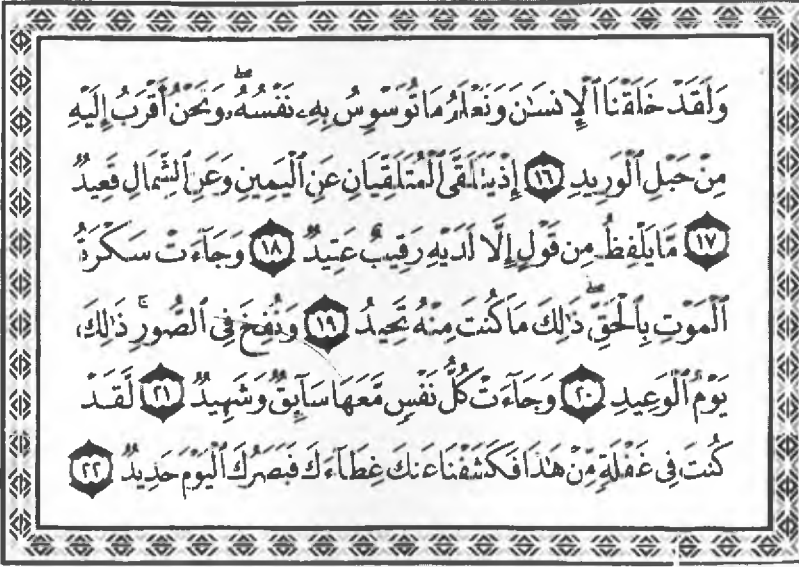 وَلَقَدۡ خَلَقۡنَا ٱلۡإِنسَٰنَ وَنَعۡلَمُ مَا تُوَسۡوِسُ بِهِۦ نَفۡسُهُۥۖ وَنَحۡنُ أَقۡرَبُ إِلَيۡهِ
مِنۡ حَبۡلِ ٱلۡوَرِيدِ ١٦ إِذۡ يَتَلَقَّى ٱلۡمُتَلَقِّيَانِ عَنِ ٱلۡيَمِينِ وَعَنِ ٱلشِّمَالِ قَعِيدٞ
١٧ مَّا يَلۡفِظُ مِن قَوۡلٍ إِلَّا لَدَيۡهِ رَقِيبٌ عَتِيدٞ ١٨ وَجَآءَتۡ سَكۡرَةُ
ٱلۡمَوۡتِ بِٱلۡحَقِّۖ ذَٰلِكَ مَا كُنتَ مِنۡهُ تَحِيدُ ١٩ وَنُفِخَ فِي ٱلصُّورِۚ ذَٰلِكَ
يَوۡمُ ٱلۡوَعِيدِ ٢٠ وَجَآءَتۡ كُلُّ نَفۡسٖ مَّعَهَا سَآئِقٞ وَشَهِيدٞ ٢١ لَّقَدۡ
كُنتَ فِي غَفۡلَةٖ مِّنۡ هَٰذَا فَكَشَفۡنَا عَنكَ غِطَآءَكَ فَبَصَرُكَ ٱلۡيَوۡمَ حَدِيدٞ ٢٢